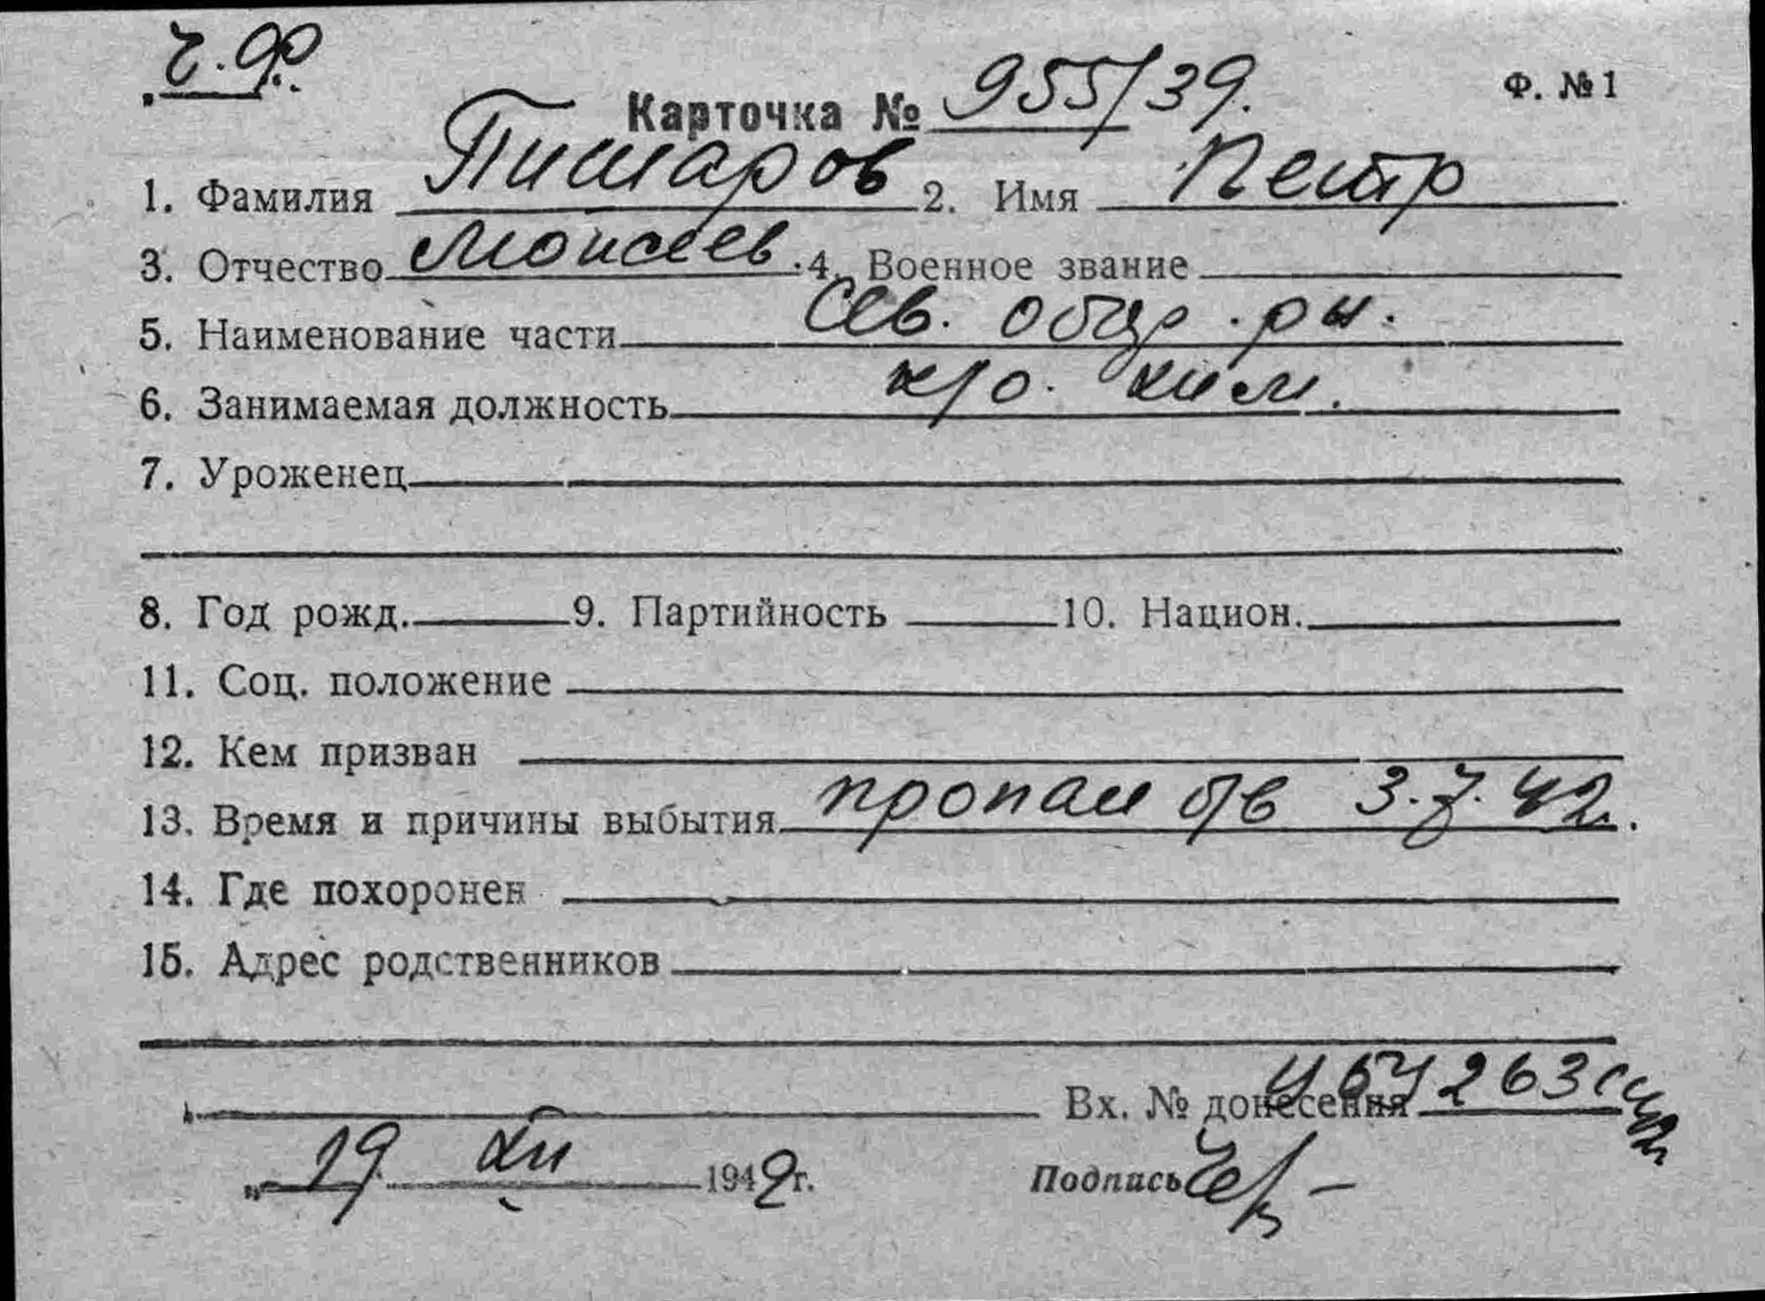 Ч.Ф.
Карточка № 955/39. Ф. №1
1. Фамилия Пишаров 2. Имя Петр
3. Отчество Моисеев. 4. Военное звание
5. Наименование части Сев. обор. рн.
6. Занимаемая должность к/о. хим.
7. Уроженец
8. Год рожд. 9. Партийность 10. Национ.
11. Соц. положение
12. Кем призван
13. Время и причины выбытия пропал б/в 3.7.42г.
14. Где похоронен
15. Адрес родственников
Вх. № донесения 263
„ 19 XII 1942г. Подпись